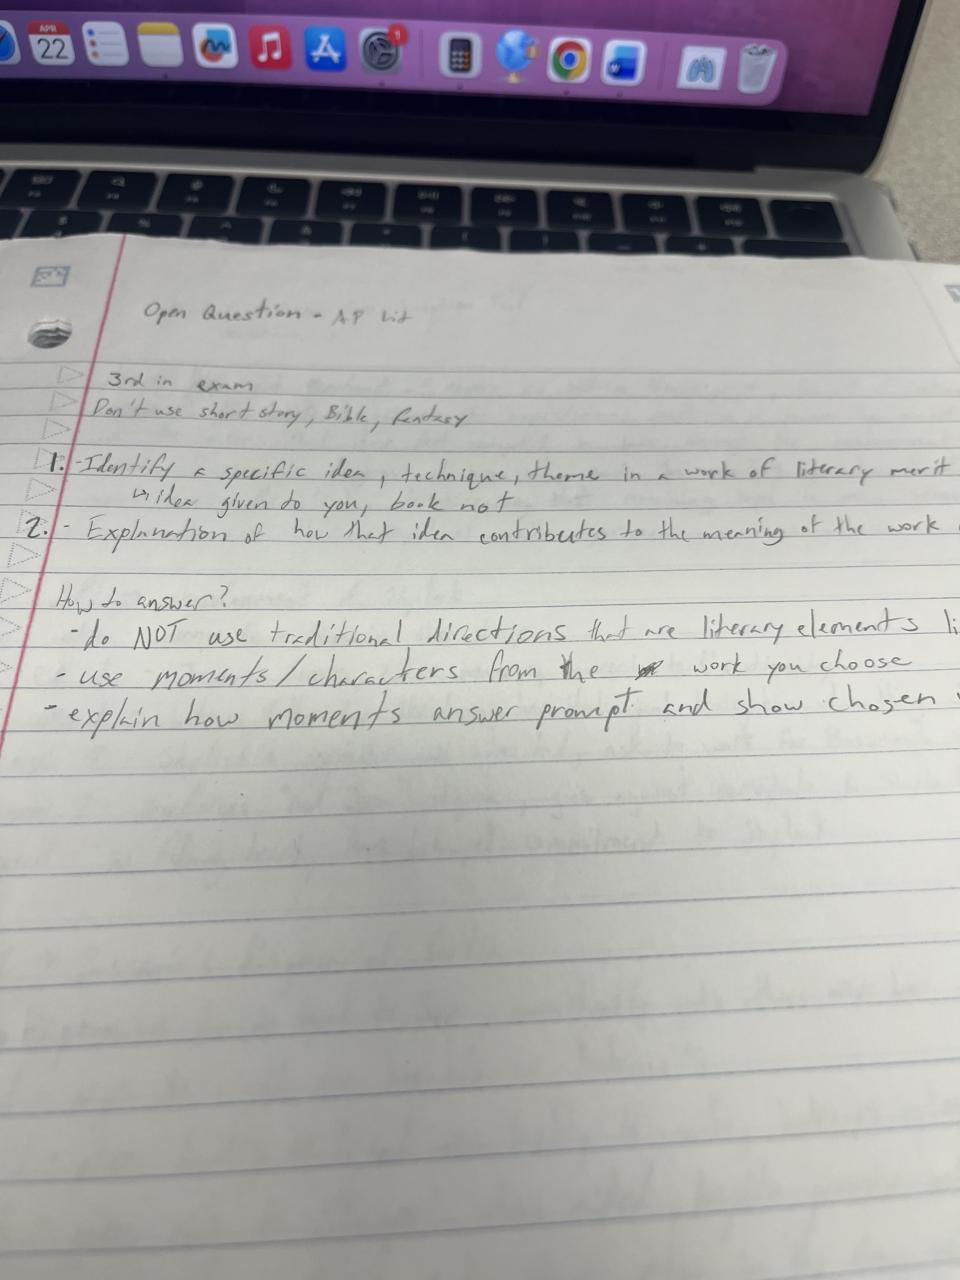 APR
22
1
Open Question - AP Lit
3rd in exam
Don't use short story, Bible, fantasy
1. - Identify a specific idea, technique, theme in a work of literary merit
↳ idea given to you, book not
2. - Explanation of how that idea contributes to the meaning of the work
How to answer?
- do NOT use traditional directions that are literary elements li
- use moments/characters from the work you choose
- explain how moments answer prompt and show chosen